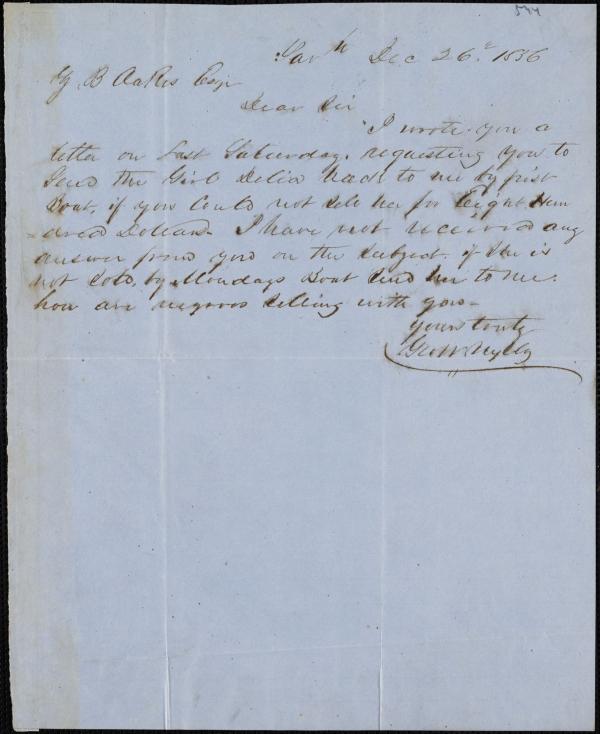 544
Savh Dec 26. 1856
Z B Oakes Esqr
Dear Sir
I wrote you a
letter on Last Saturday, requesting you to
Send the Girl Delia back to me by first
Boat, if you Could not sell her for Eight Hun
-dred Dollars. I have not received any
answer from you on the Subject. if She is
not Sold, by Mondays Boat Send her to me.
how are negroes Selling with you-
Yours truly
Geo W Wylly